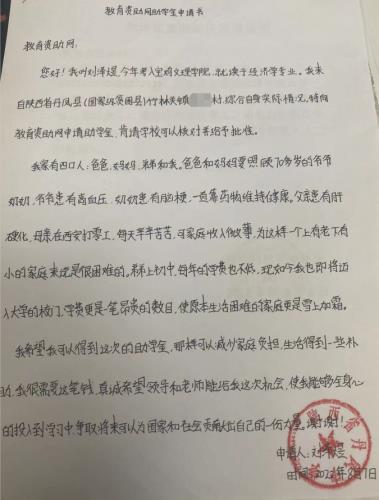 教育资助网助学生申请书
教育资助网：
您好！我叫刘泽煜，今年考入宝鸡文理学院，就读于经济学专业。我来
自陕西省丹凤县（国家级贫困县）竹林关镇 村，综合自身实际情况，特向
教育资助网申请助学金，肯请学校可以核对并给予批准。
我家有四口人：爸爸，妈妈，弟弟和我。爸爸和妈妈要照顾70多岁的爷爷
奶奶，爷爷患有高血压，奶奶患有脑梗，一直靠药物维持健康。父亲患有肝
硬化，母亲在西安打零工，每天辛辛苦苦，可家庭收入微薄，为这样一个上有老下有
小的家庭来说是很困难的。弟上初中，每年的学费也不低，现如今我也即将迈
入大学的校门，学费更是一笔昂贵的数目，使原本生活困难的家庭更是雪上加霜。
我希望我可以得到这次的助学金，那样可以减少家庭负担，生活得到一些补
助，我很需要这笔钱，真诚希望领导和老师能给我这次机会，使我能够全身心
的投入到学习中，争取将来可以为国家和社会贡献出自己的一份力量。谢谢！
申请人：刘泽煜
时间：2022年8月7日
陕西省丹